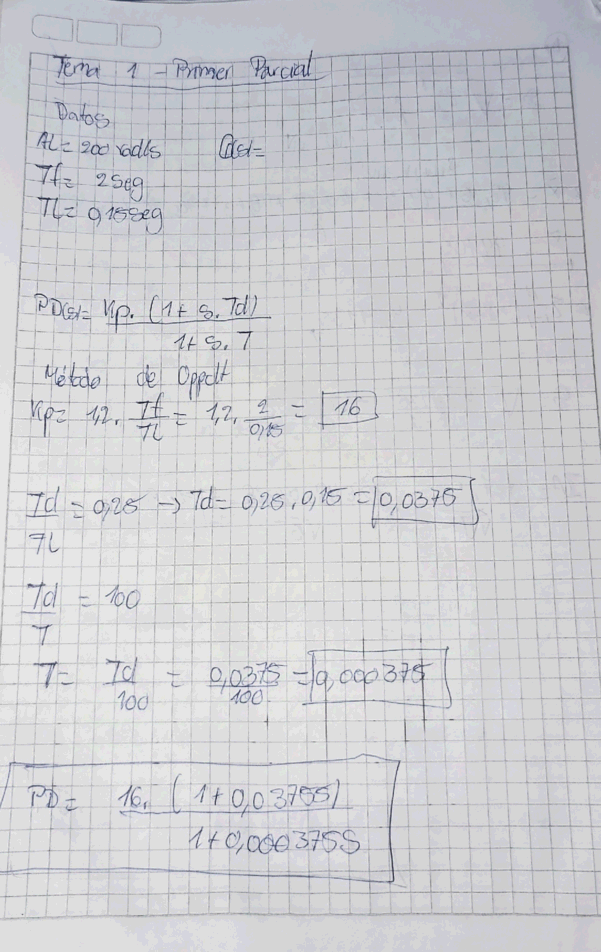 Tema 1 - Primer Parcial
Datos
AL= 200 rad/s
Tf= 2 seg
TL= 0,15 seg
PD(s)= Kp. (1+ s. Td)
1+ s. T
Método de Oppelt
Kp= 1,2. Tf/TL = 1,2. 2/0,15 = 16
Td/TL = 0,25 → Td= 0,25 . 0,15 = 0,0375
Td/T = 100
T= Td/100 = 0,0375/100 = 0,000375
PD= 16. (1+0,0375S)
1+0,000375S